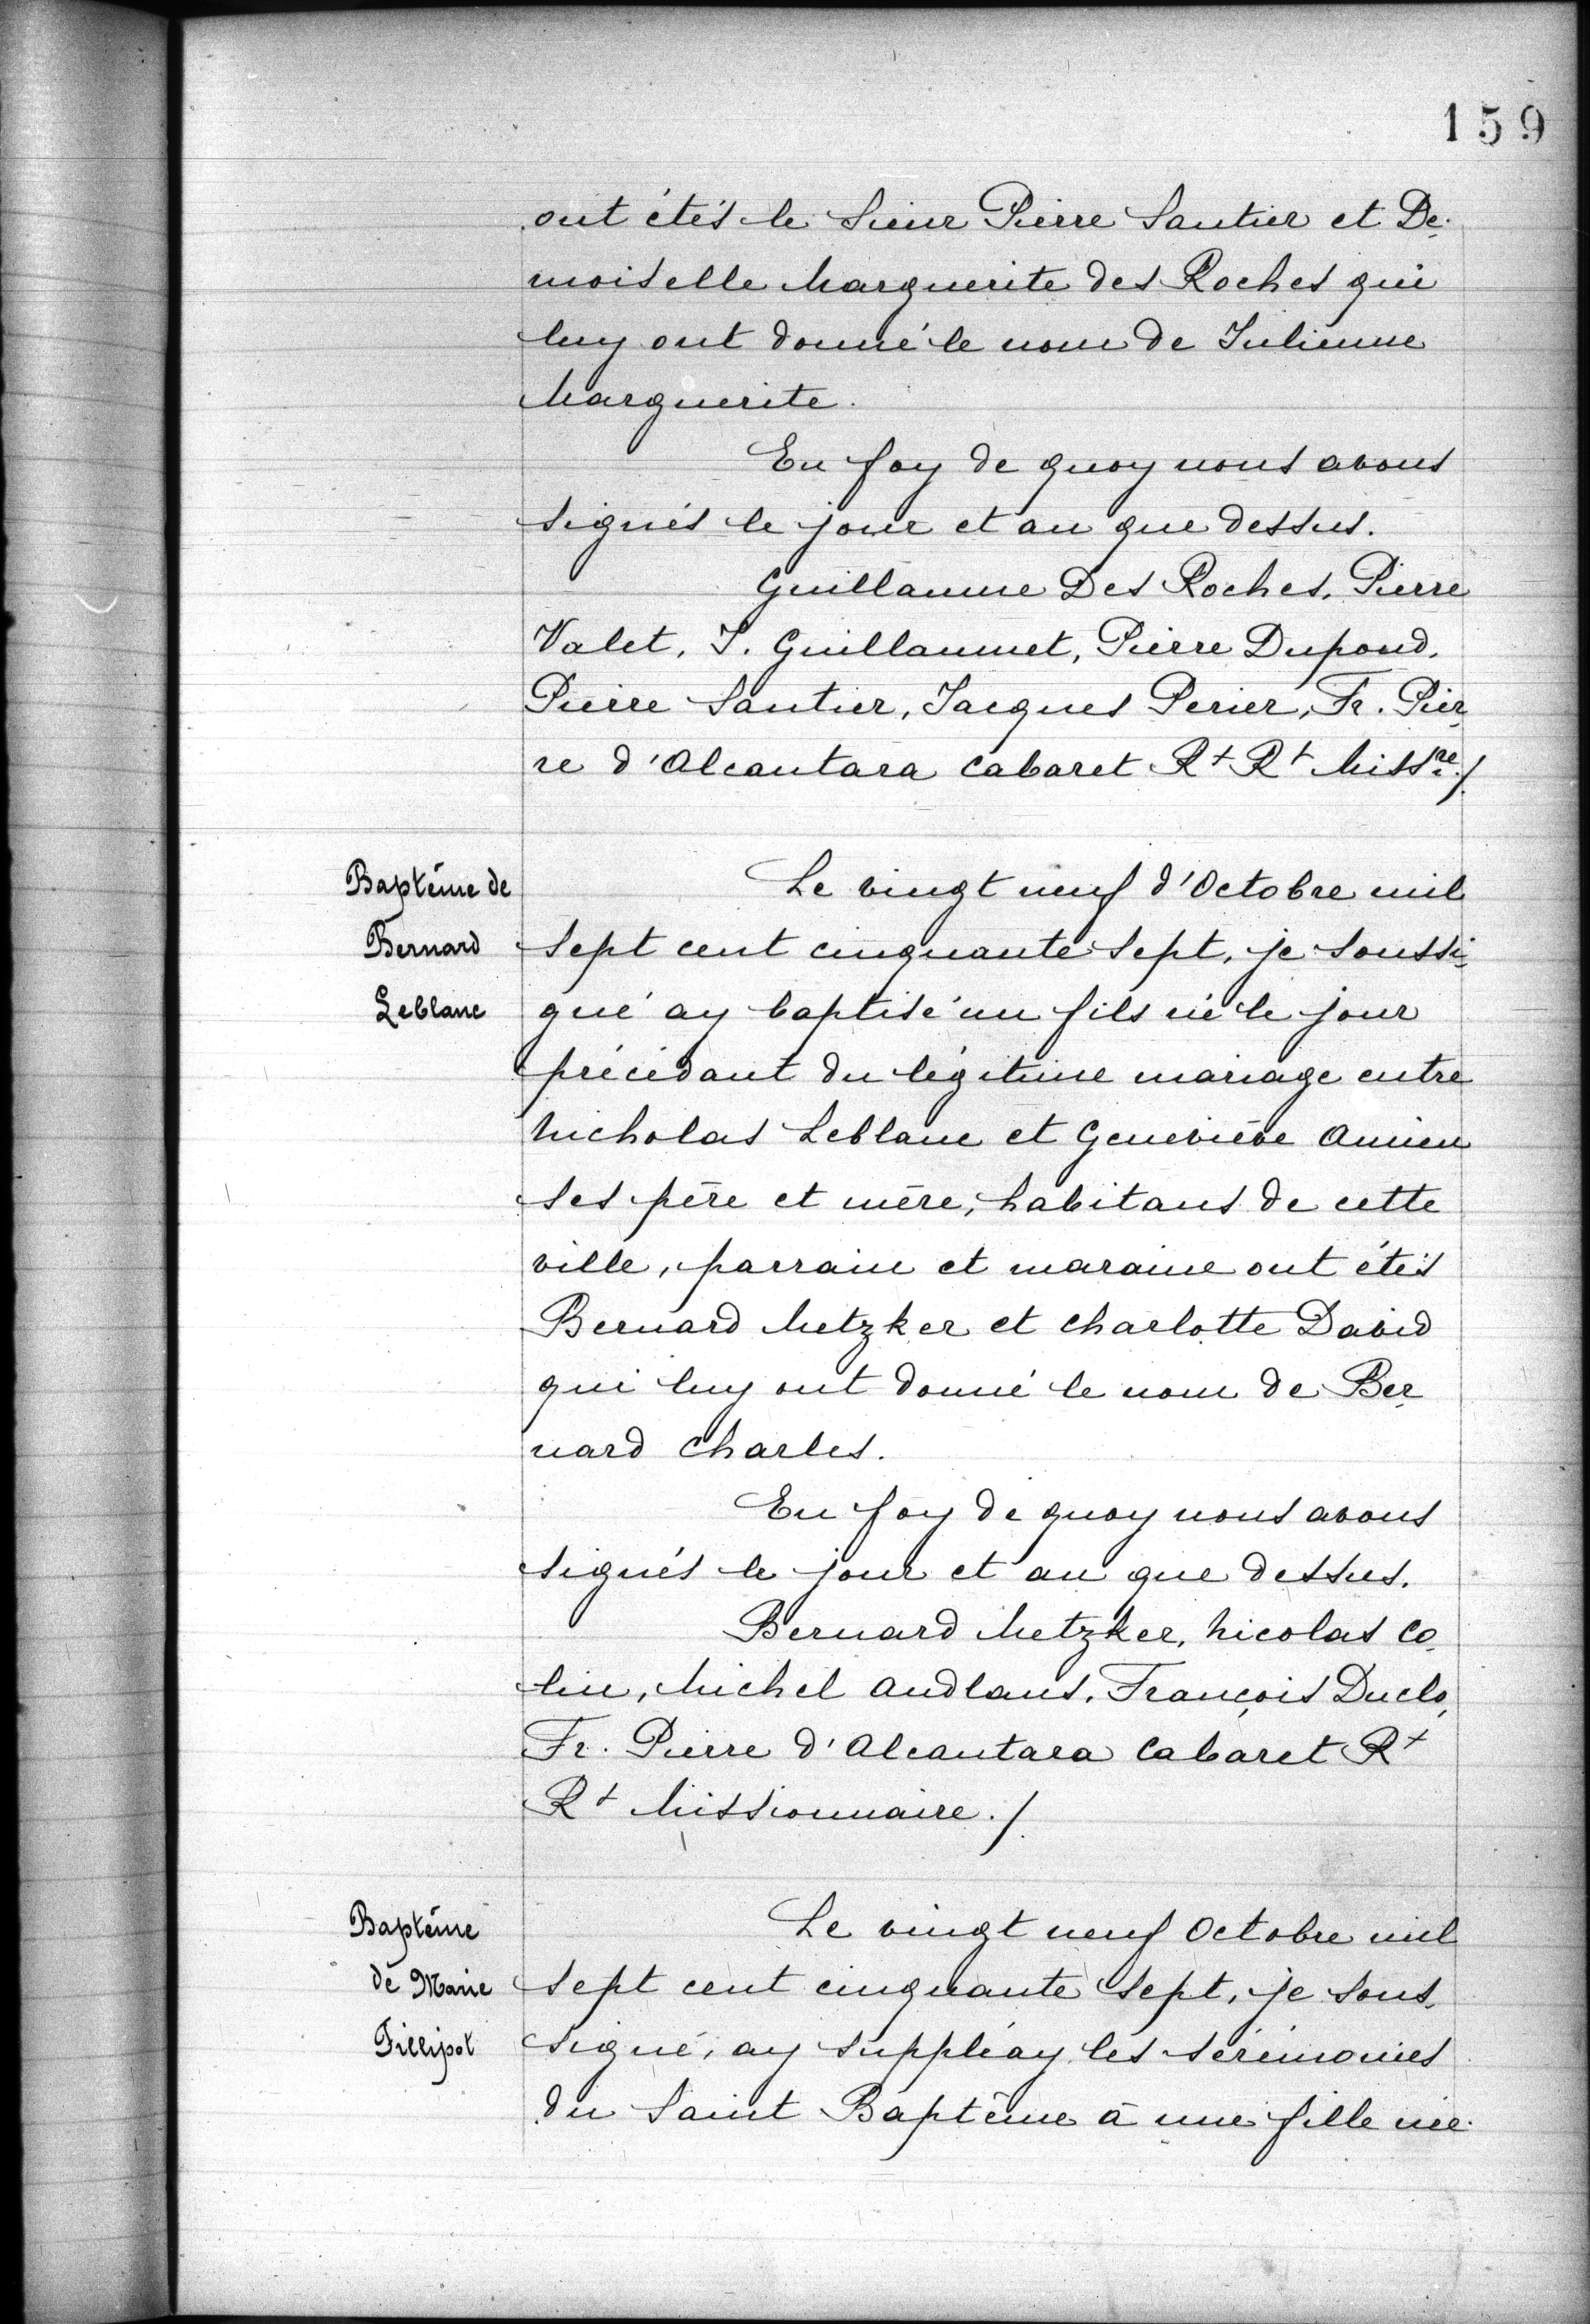 159
ont étés le Sieur Pierre Santier et De-
moiselle Marguerite des Roches qui
luy ont donné le nom de Julienne
Marguerite.
En foy de quoy nous avons
signés le jour et an que dessus.
Guillaume Des Roches, Pierre
Valet, J. Guillaumet, Pierre Dupond,
Pierre Santier, Jacques Perier, Fr. Pier-
re d'Alcantara Cabaret Rt Rt Missre./.
Baptême de
Bernard
Leblanc
Le vingt neuf d'Octobre mil
sept cent cinquante sept, je soussi-
gné ay baptisé un fils né le jour
précédant du légitime mariage entre
Nicholas Leblanc et Geneviève Amien
ses père et mère, habitans de cette
ville, parrain et maraine ont étés
Bernard Metzker et Charlotte David
qui luy ont donné le nom de Ber-
nard Charles.
En foy de quoy nous avons
signés le jour et an que dessus.
Bernard Metzker, Nicolas Co-
lin, Michel Audlans, François Duclo,
Fr. Pierre d'Alcantara Cabaret Rt
Rt Missionnaire./.
Baptême
de Marie
Fillipot
Le vingt neuf Octobre mil
sept cent cinquante sept, je sous-
signé, ay suppléay les sérémonies
du Saint Baptême à une fille née